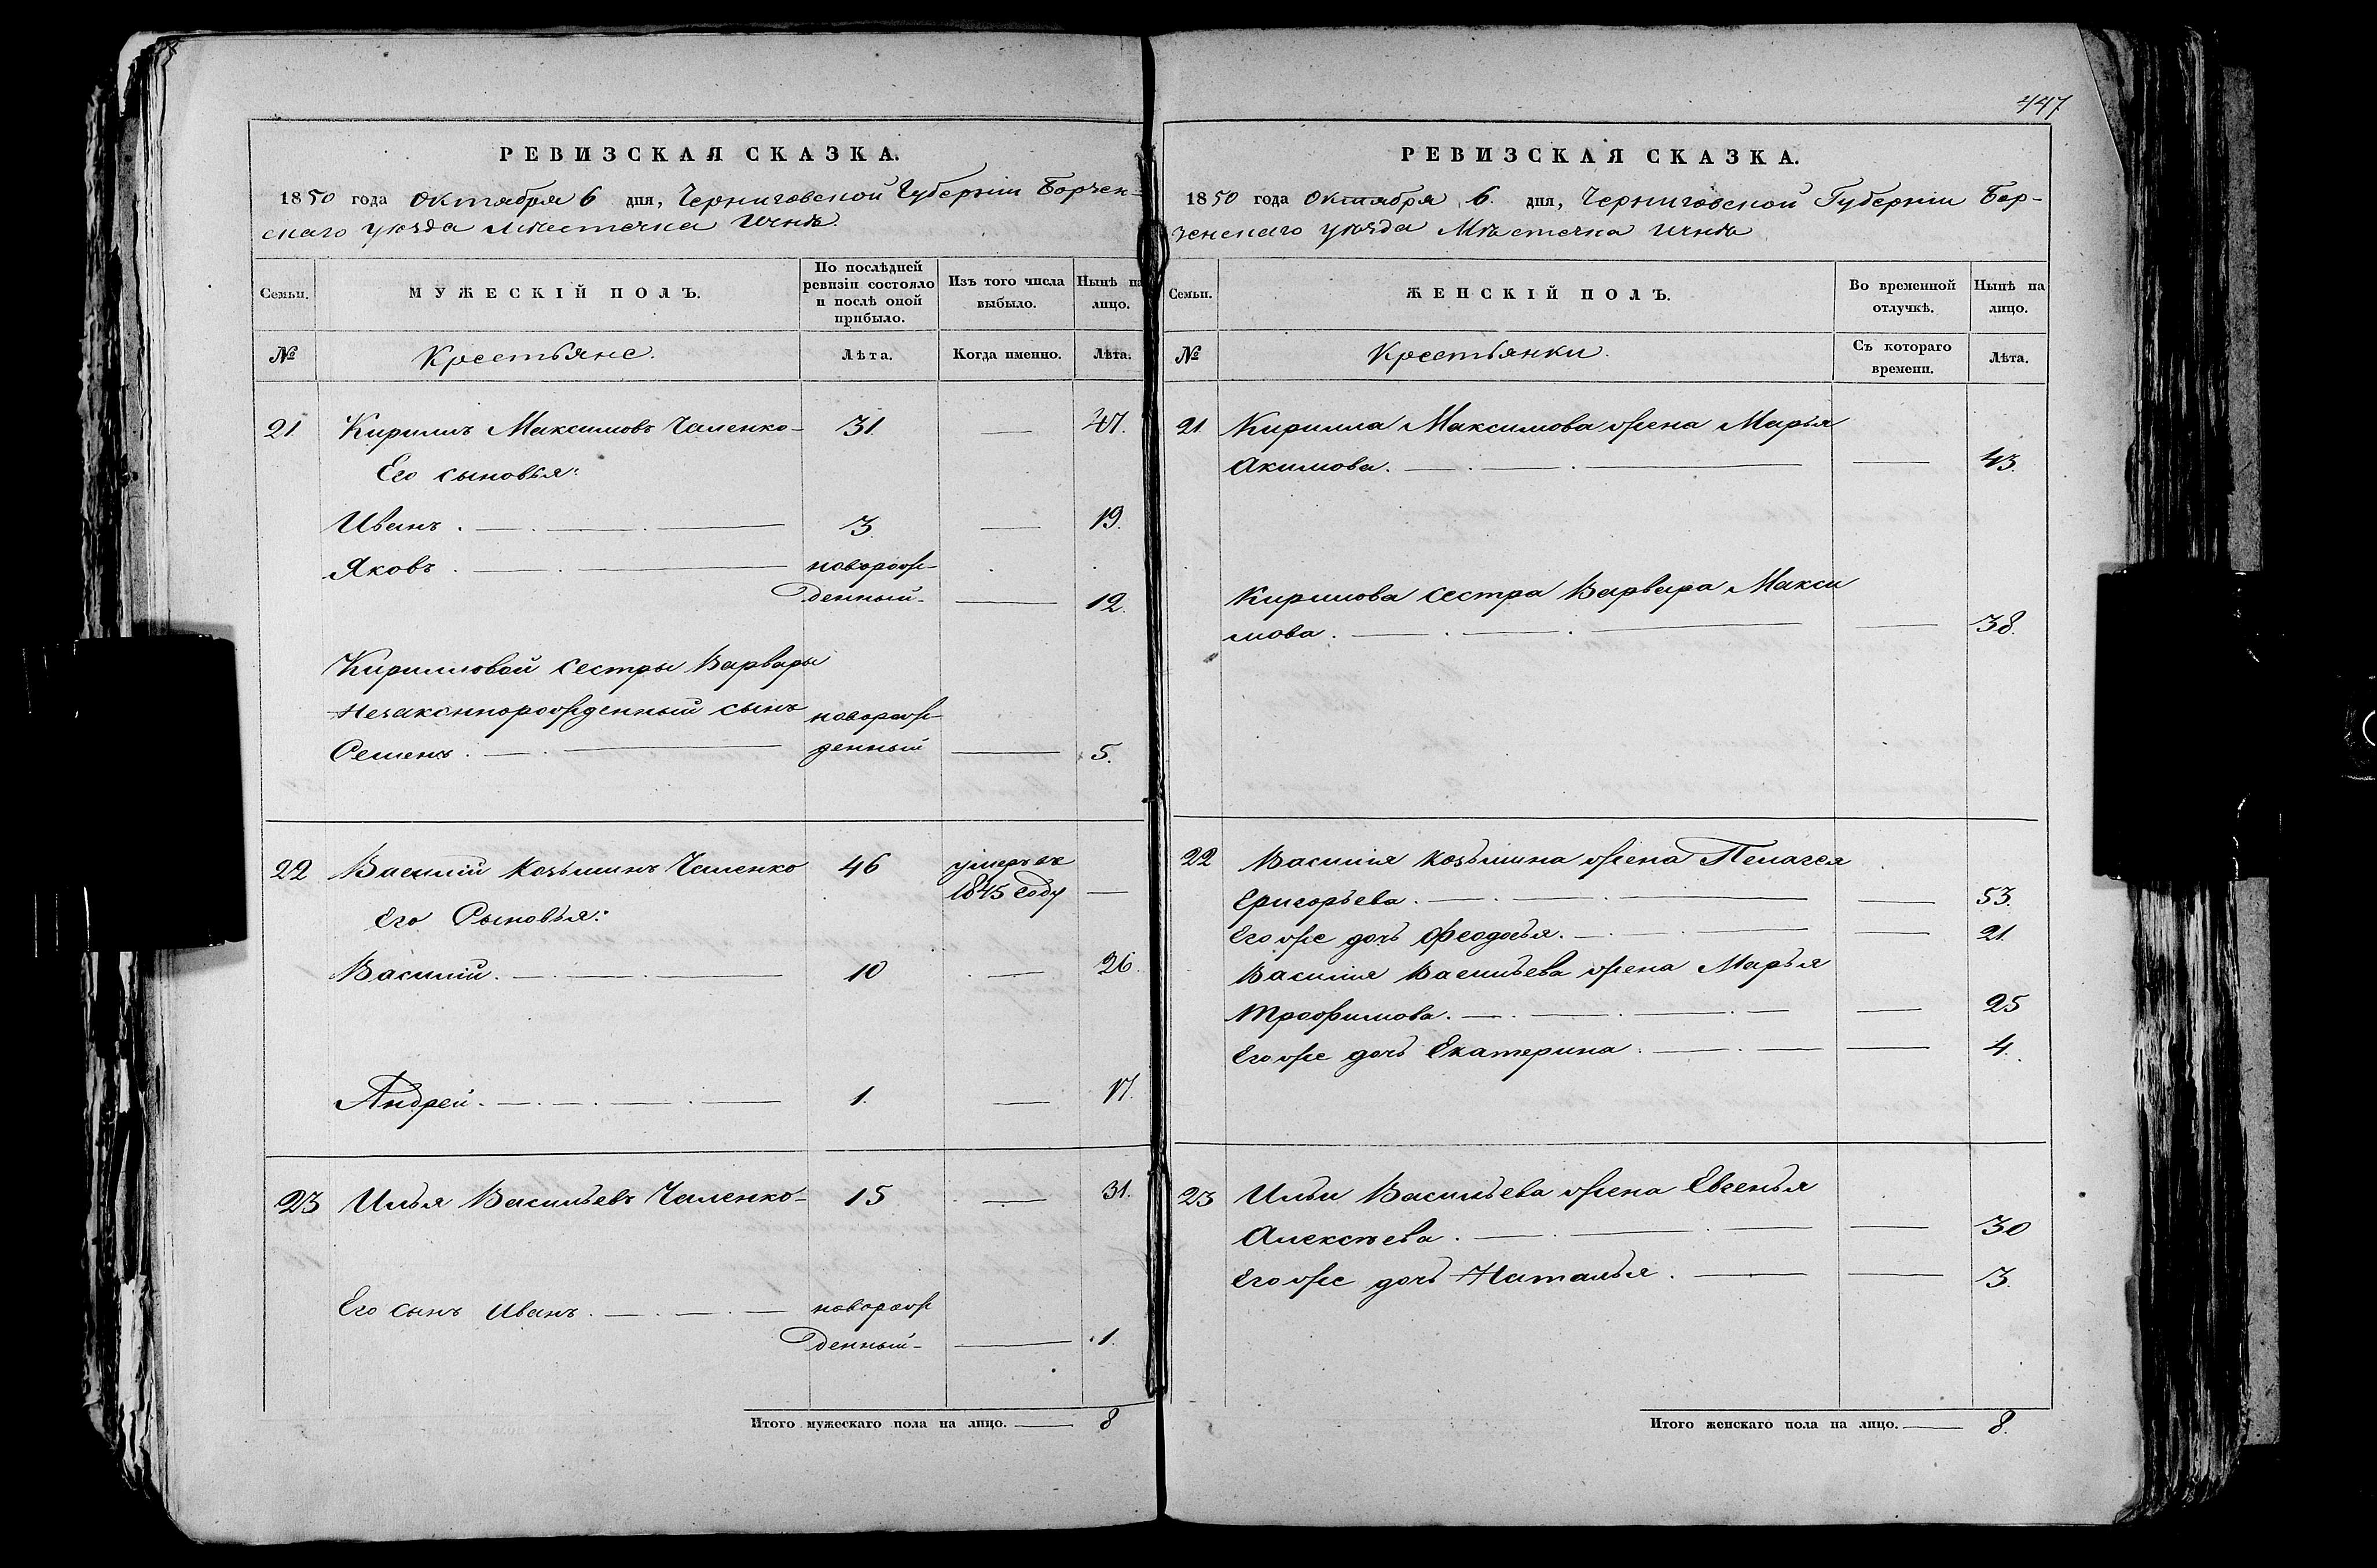 РЕВИЗСКАЯ СКАЗКА.
1850 года Октября 6 дня, Черниговской Губерніи Борзен-
скаго уѣзда мѣстечка Ични.
Семьи.
МУЖЕСКІЙ ПОЛЪ.
По послѣдней
ревизіи состояло
и послѣ оной
прибыло.
Изъ того числа
выбыло.
Нынѣ на
лицо.
№ Крестьяне. Лѣта. Когда именно. Лѣта.
21. Кирилъ Максимовъ Чаленко 31. — 47.
Его сыновья:
Иванъ. 3. — 19.
Яковъ. новорож-
денный — 12.
Кириловой сестры Варвары
Незаконнорожденный сынъ новорож-
Семенъ. денный — 5.
22 Василій Козьминъ Чаленко 46 умеръ въ
1845 году —
Его Сыновья:
Василій. 10 — 26.
Андрей. 1. — 17.
23 Илья Васильевъ Чаленко 15 — 31.
Его сынъ Иванъ. новорож
денный — 1.
Итого мужескаго пола на лицо. — 8
447
РЕВИЗСКАЯ СКАЗКА.
1850 года Октября 6. дня, Черниговской Губерніи Бор-
зенскаго уѣзда Мѣстечка Ични
Семьи.
ЖЕНСКІЙ ПОЛЪ.
Во временной
отлучкѣ.
Нынѣ на
лицо.
№ Крестьянки. Съ котораго
времени. Лѣта.
21. Кирилла Максимова жена Марья
Акимова. — 43.
Кирилова сестра Варвара Макси
мова. — 38.
22 Василія Козьмина жена Пелагея
Григорьева. — 53.
Его же дочь Феодосья. — 21.
Василія Васильева жена Марья
Трофимова. — 25
Его же дочь Екатерина. — 4.
23 Ильи Васильева жена Евгенья
Алексѣева. — 30
Его же дочь Наталья. — 3.
Итого женскаго пола на лицо. — 8.